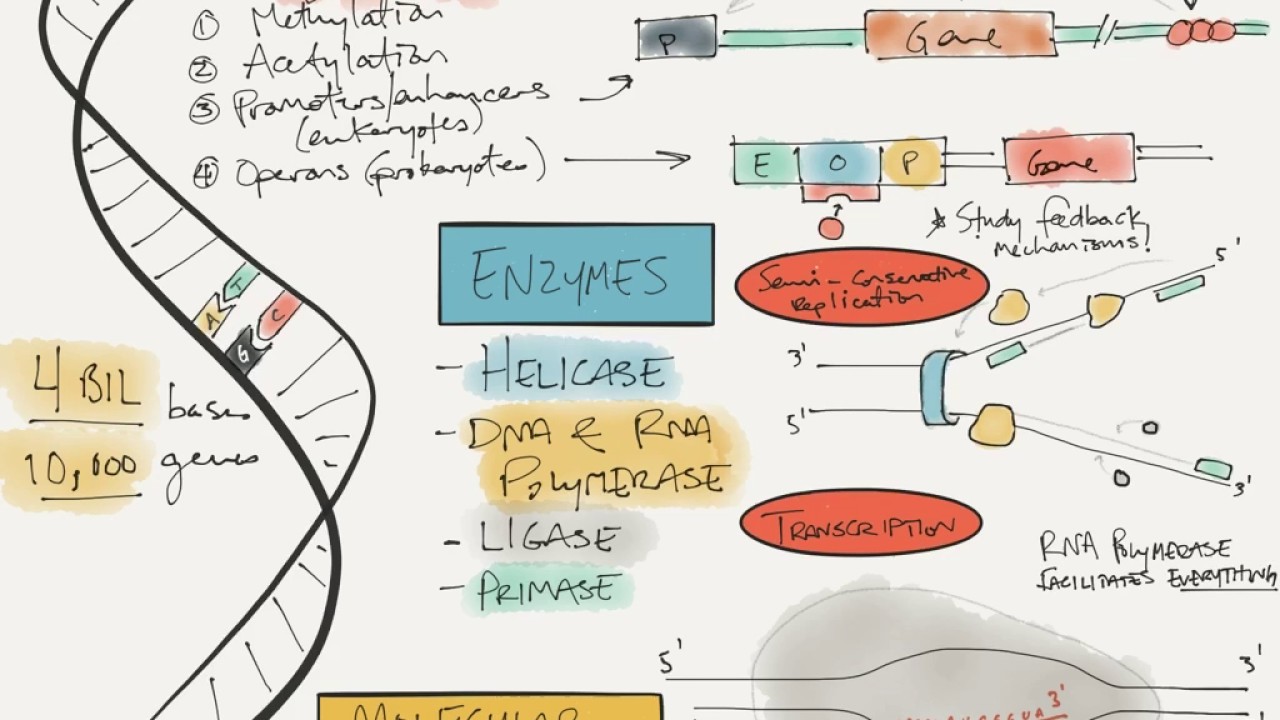 ① Methylation
② Acetylation
③ Promoters/enhancers
(eukaryotes)
④ Operons (prokaryotes)
P
Gene
E O P
Gene
* Study feedback
mechanisms!
T
A
C
G
4 BIL bases
10,000 genes
ENZYMES
- HELICASE
- DNA & RNA
POLYMERASE
- LIGASE
- PRIMASE
Semi-Conservative
Replication
5'
3'
5'
3'
TRANSCRIPTION
RNA POLYMERASE
FACILITATES EVERYTHING
5'
3'
3'
MOLECULAR